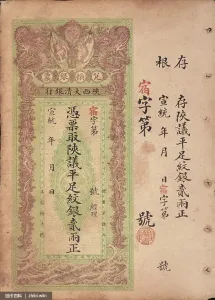 存根
存陝議平足紋銀貳兩正
宿字第 號
宣統 年 月 日宿字第 號
陝西大清銀行
宿字第 號
憑票取陝議平足紋銀貳兩正
宣統 年 月 日
經理